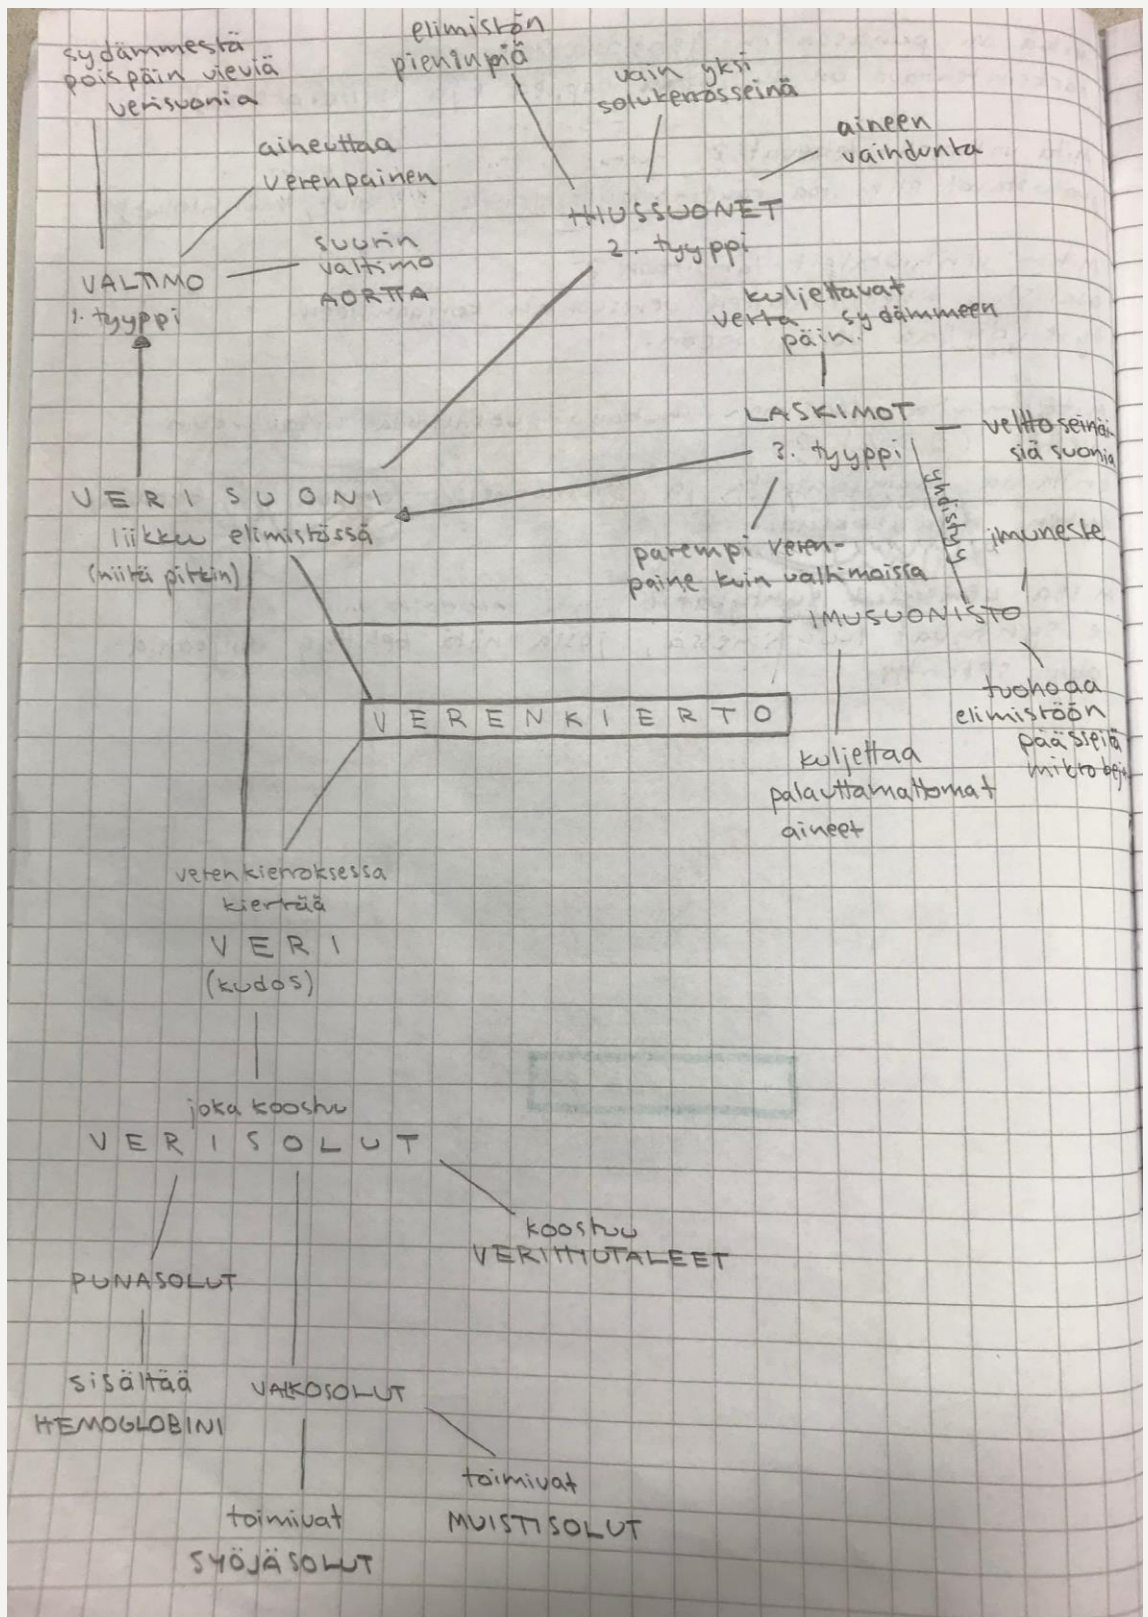 sydämmestä
poispäin vieviä
verisuonia
elimistön
pienimpiä
vain yksi
solukerrosseinä
aineen
vaihdunta
aiheuttaa
verenpainen
HIUSSUONET
2. tyyppi
suurin
valtimo
AORTTA
VALTIMO
1. tyyppi
kuljettavat
verta sydämmeen
päin.
LASKIMOT
3. tyyppi
velttoseinäi-
siä suonia
VERISUONI
liikkuu elimistössä
(niitä pitkin)
yhdistyy
imuneste
parempi veren-
paine kuin valtimoissa
IMUSUONISTO
tuohoaa
elimistöön
päässeitä
mikrobeja
VERENKIERTO
kuljettaa
palauttamattomat
aineet
verenkierroksessa
kiertää
VERI
(kudos)
joka koostuu
VERISOLUT
koostuu
VERIHIUTALEET
PUNASOLUT
sisältää
HEMOGLOBINI
VALKOSOLUT
toimivat
MUISTISOLUT
toimivat
SYÖJÄSOLUT